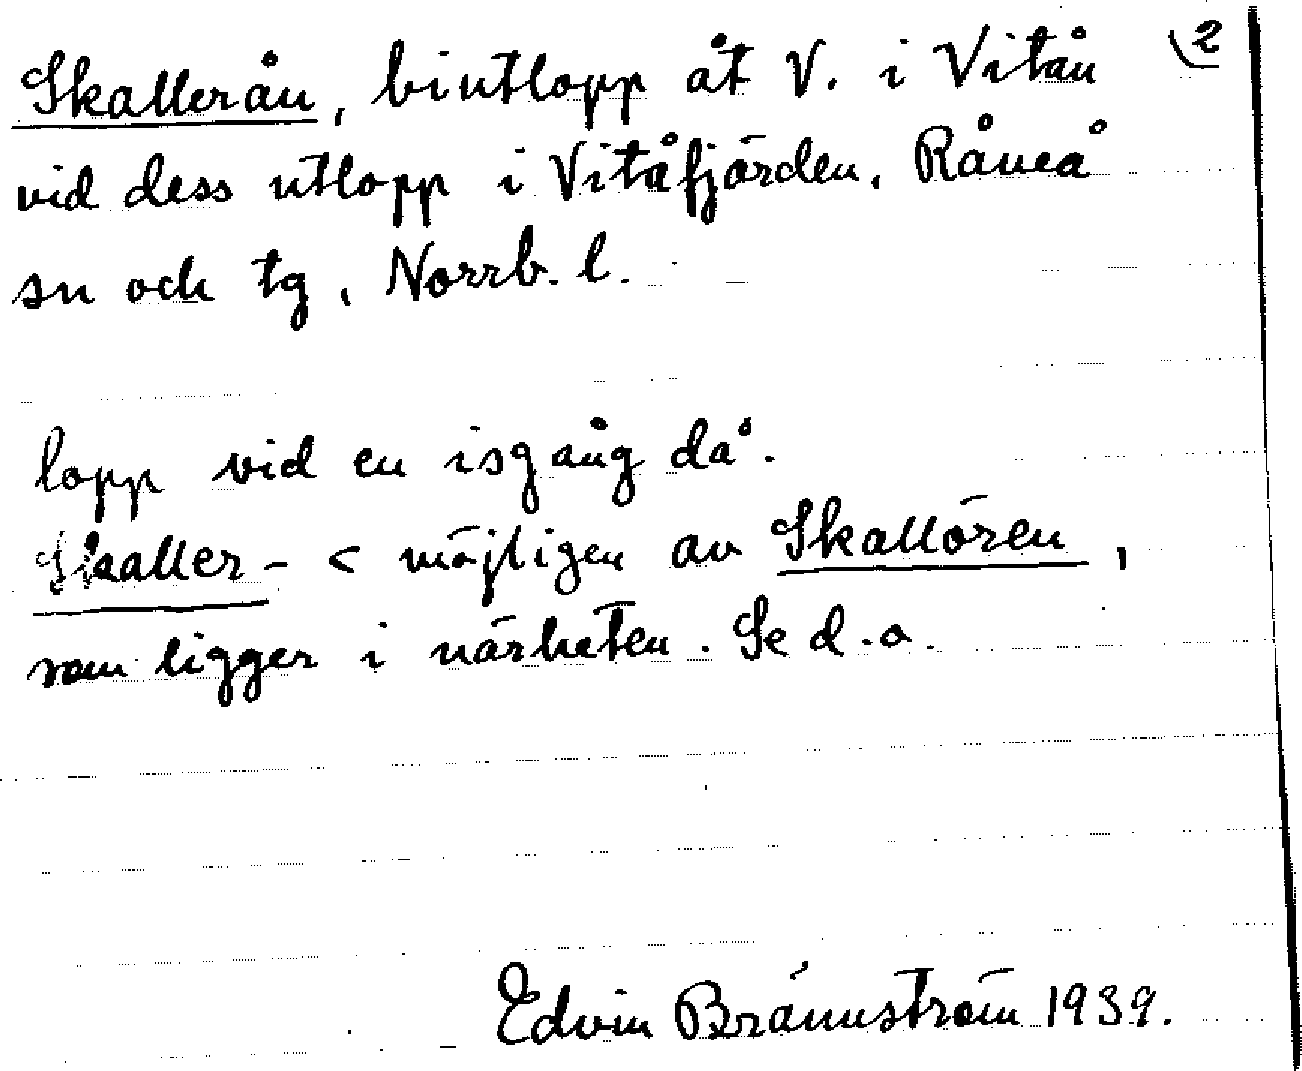 Skallerån, biutlopp åt V. i Vitån (2
vid dess utlopp i Vitåfjärden, Råneå
sn och tg, Norrb. l.
lopp vid en isgång då.
Skaller- < möjligen av Skallören,
som ligger i närheten. Se d.o.
Edvin Brännström 1939.